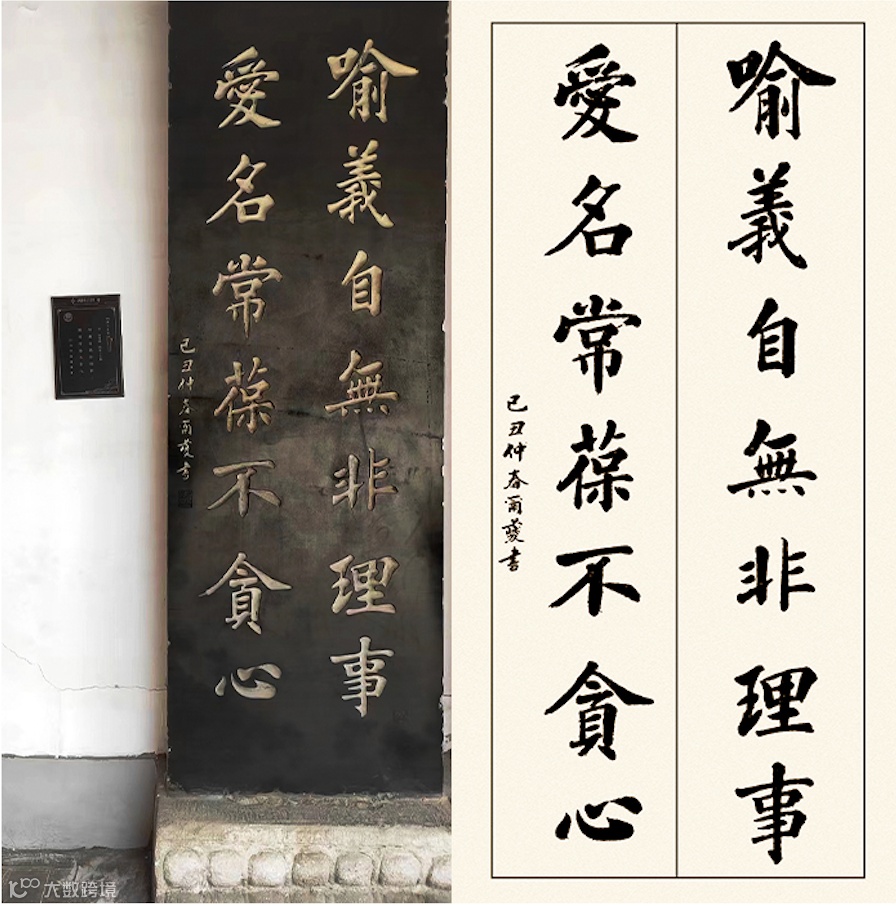 喻義自無非理事
愛名常葆不貪心
己丑仲春爾葼書
喻義自無非理事
愛名常葆不貪心
己丑仲春爾葼書
大数跨境